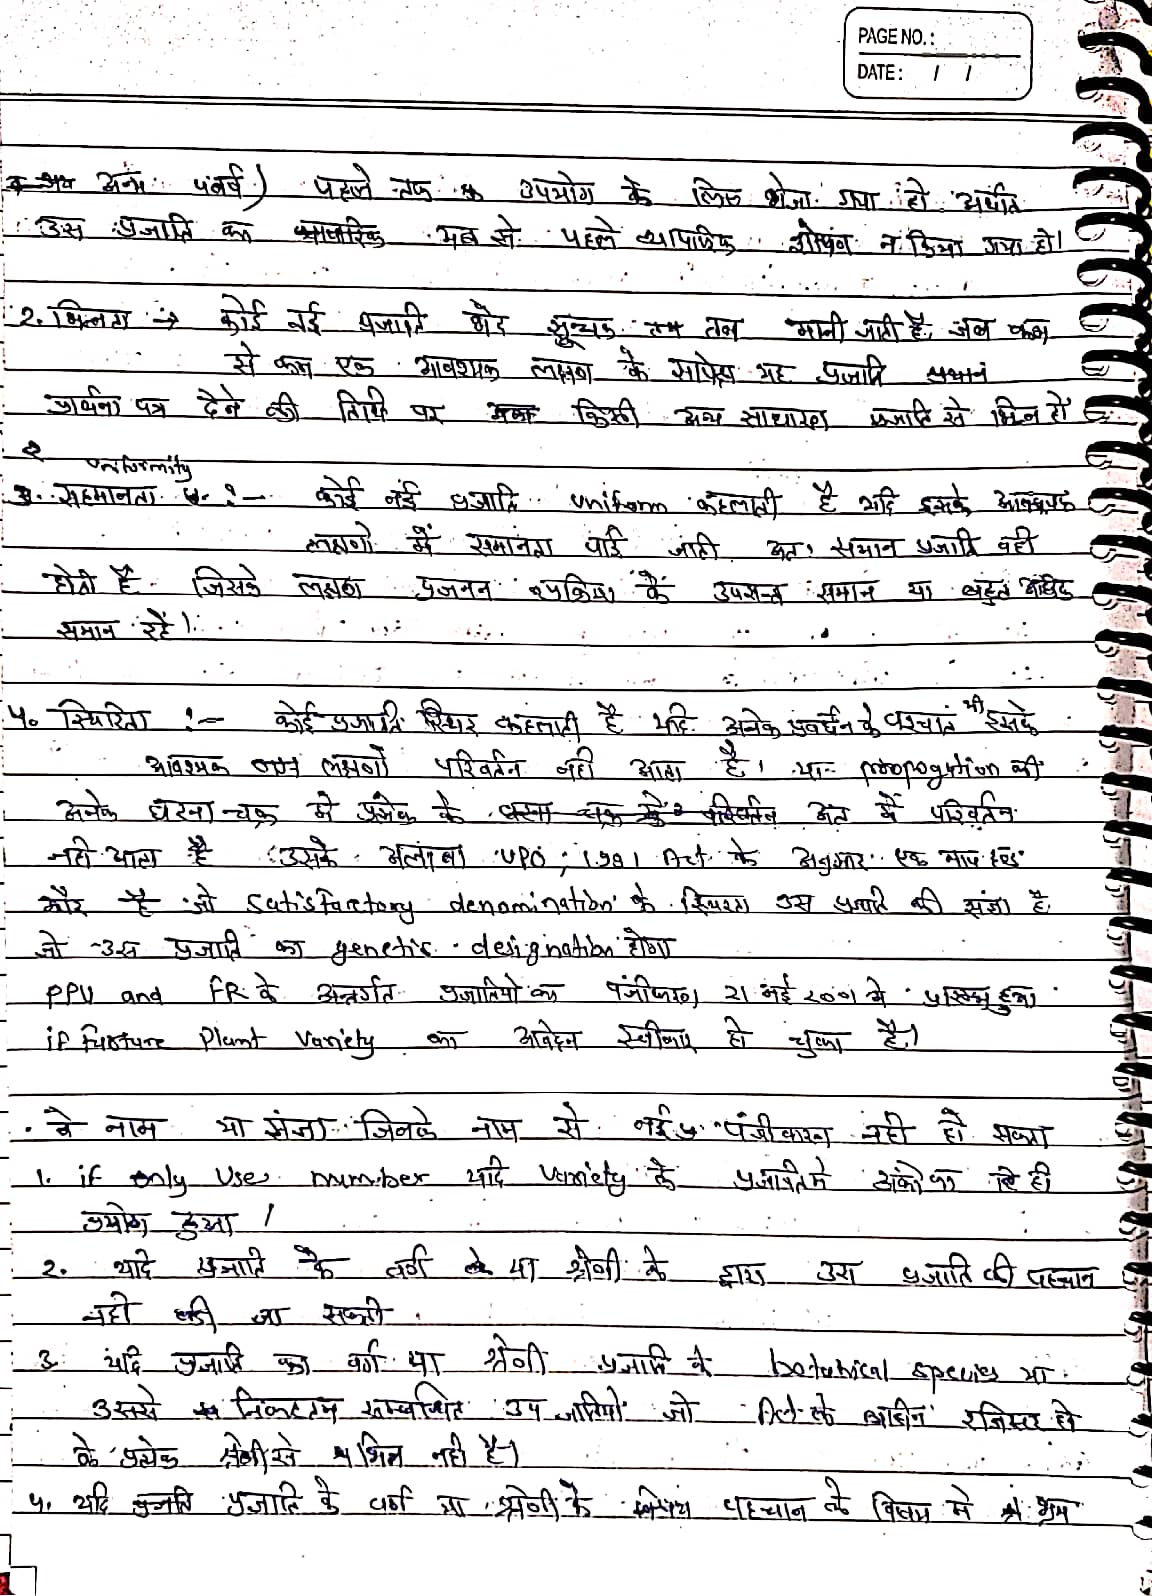 PAGE NO.:
DATE: / /
पहले तक उपयोग के लिए भेजा गया हो अर्थात
उस प्रजाति का से पहले व्यापारिक शोषण न किया गया हो।
2. भिन्नता → कोई नई प्रजाति तब मानी जाती है, जब कम
से कम एक आवश्यक लक्षण के सापेक्ष यह प्रजाति
प्रार्थना पत्र देने की तिथि पर किसी अन्य साधारण प्रजाति से भिन्न हो
uniformity
3. सहमानता :- कोई नई प्रजाति uniform कहलाती है यदि इसके आवश्यक
लक्षणो में समानता पाई जाती अतः समान प्रजाति वही
होती है जिसके लक्षण प्रजनन के उपरान्त समान या बहुत अधिक
समान रहें।
4. स्थिरिता :- कोई प्रजाति स्थिर कहलाती है यदि अनेक प्रवर्धन के पश्चात भी इसके
आवश्यक लक्षणो परिवर्तन नही आता है। या propogation की
अनेक घटना चक्र मे प्रत्येक के अंत में परिवर्तन
नही आता है उसके अलावा UPO, 1981 Act के अनुसार एक माप दंड
और है जो Satisfactory denomination के स्थिरता उस प्रजाति की संज्ञा है
जो उस प्रजाति का genetic designation होगा
PPV and FR के अन्तर्गत प्रजातियो का पंजीकरण 21 मई 2001 मे प्रारम्भ हुआ
if Furture Plant Variety का आवेदन स्वीकार हो चुका है।
. वे नाम या संज्ञा जिनके नाम से नई प्र. पंजीकरण नही हो सकता
1. if only Use number यदि Variety के प्रजाति मे अंको का ही
प्रयोग हुआ।
2. यदि प्रजाति के वर्ग या श्रेणी के द्वारा उस प्रजाति की पहचान
नही की जा सकती.
3. यदि प्रजाति का वर्ग या श्रेणी प्रजाति के botanical species या
उससे निकटतम सम्बन्धित उप जातियो जो Act के अधीन रजिस्टर हो
के प्रत्येक श्रेणी से भिन्न नही है।
4. यदि प्रजाति के वर्ग या श्रेणी के पहचान के विषय मे भ्रम